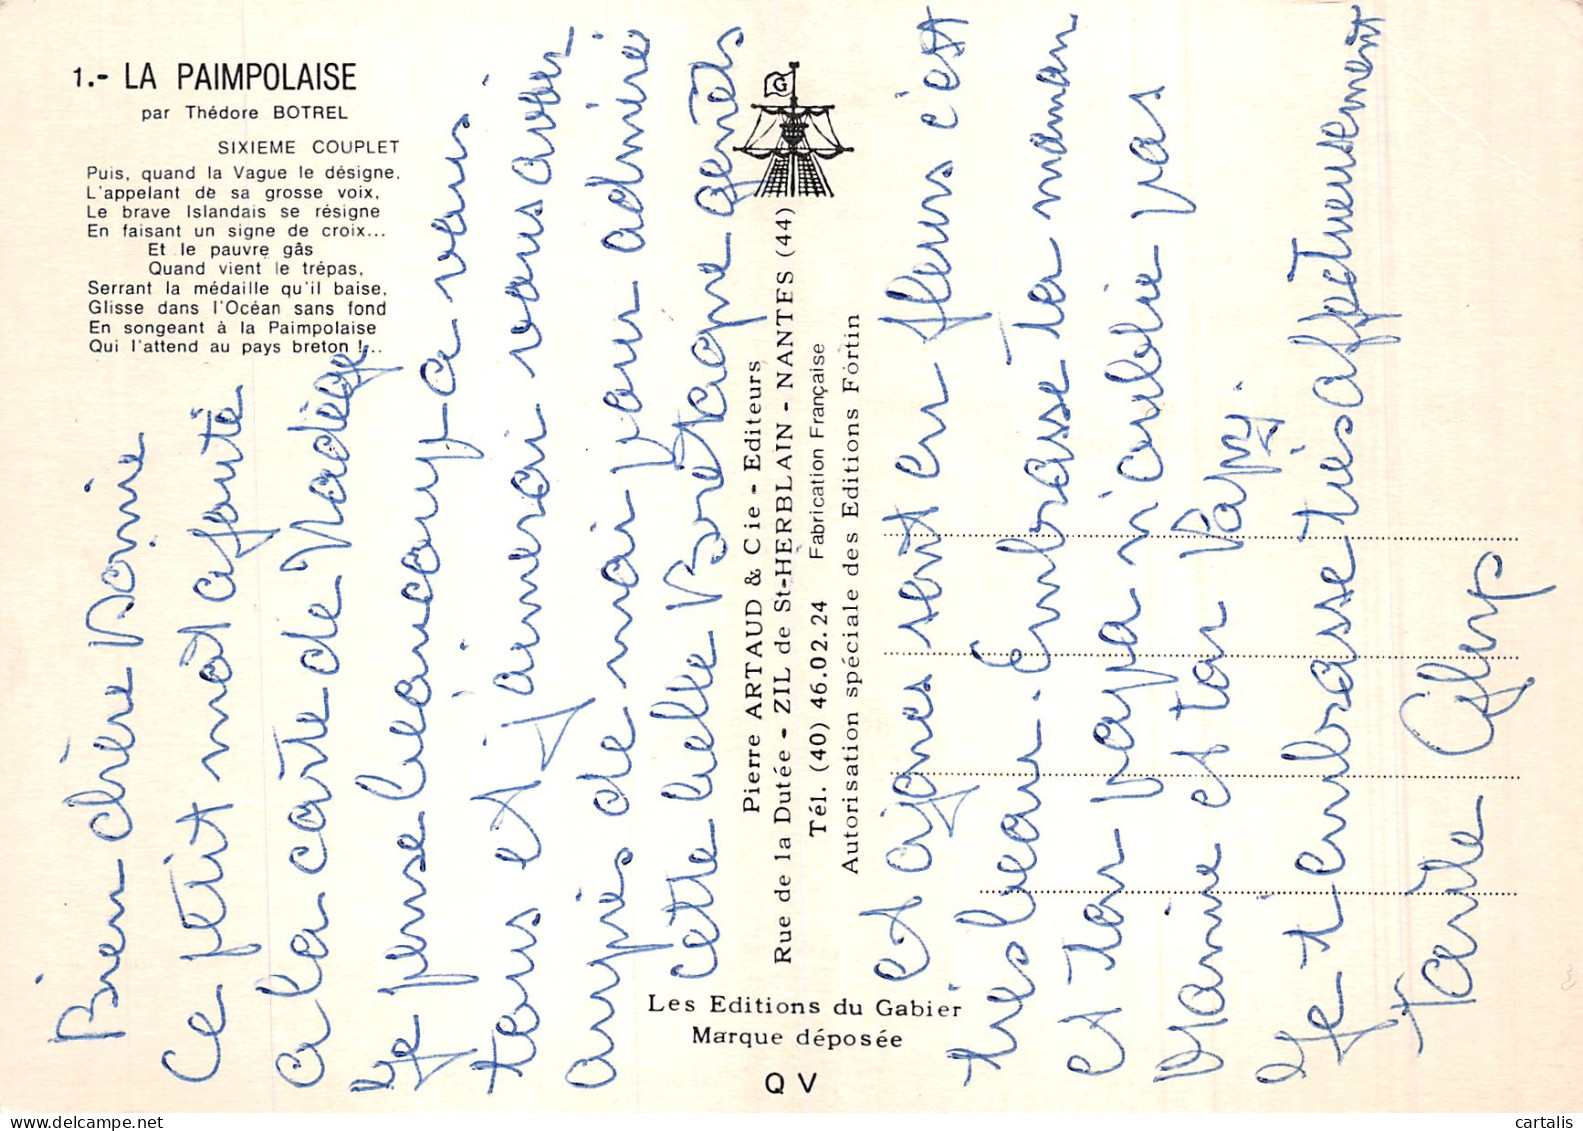 1.- LA PAIMPOLAISE
par Thédore BOTREL
SIXIEME COUPLET
Puis, quand la Vague le désigne,
L'appelant de sa grosse voix,
Le brave Islandais se résigne
En faisant un signe de croix...
Et le pauvre gâs
Quand vient le trépas,
Serrant la médaille qu'il baise,
Glisse dans l'Océan sans fond
En songeant à la Paimpolaise
Qui l'attend au pays breton !...
Bien chère
Ce petit mot ajouté
a la carte de Nadège
Je pense beaucoup a vous
tous et j'aimerai vous avoir
auprès de moi pour admiré
cette belle Bretagne genêts
et ajoncs sont en fleurs c'est
très beau. Embrasse ta maman
et ton papa n'oublie pas
Mamie et ton Papy.
Je t'embrasse très affectueusement
Tante
G
Pierre ARTAUD & Cie - Editeurs
Rue de la Dutée - ZIL de St-HERBLAIN - NANTES (44)
Tél. (40) 46.02.24 Fabrication Française
Autorisation spéciale des Editions Fortin
Les Editions du Gabier
Marque déposée
Q V
cartalis